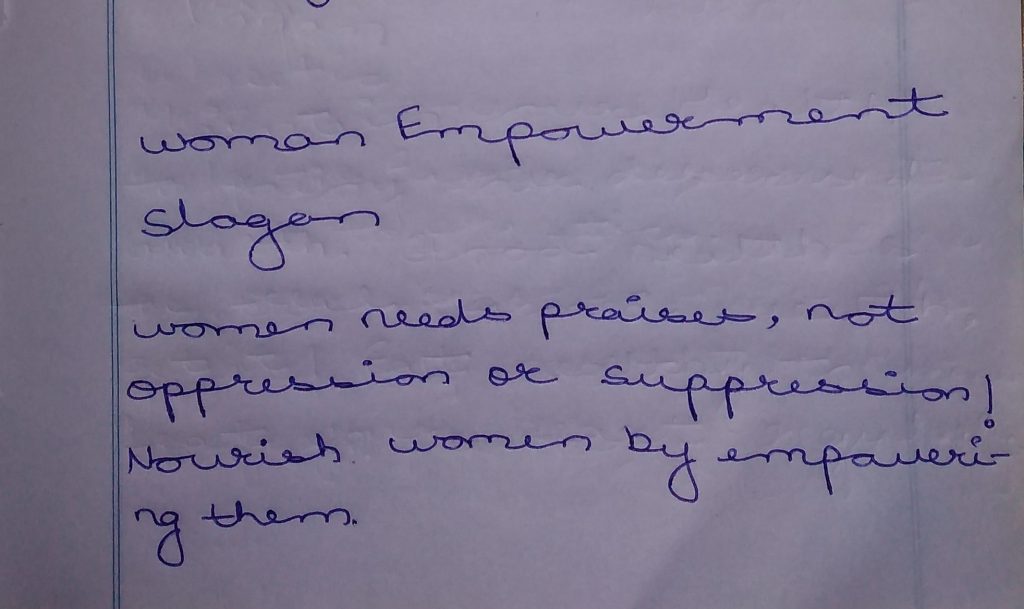 woman Empowerment
slogan
women needs praises, not
oppression or suppression!
Nourish women by empoweri-
ng them.